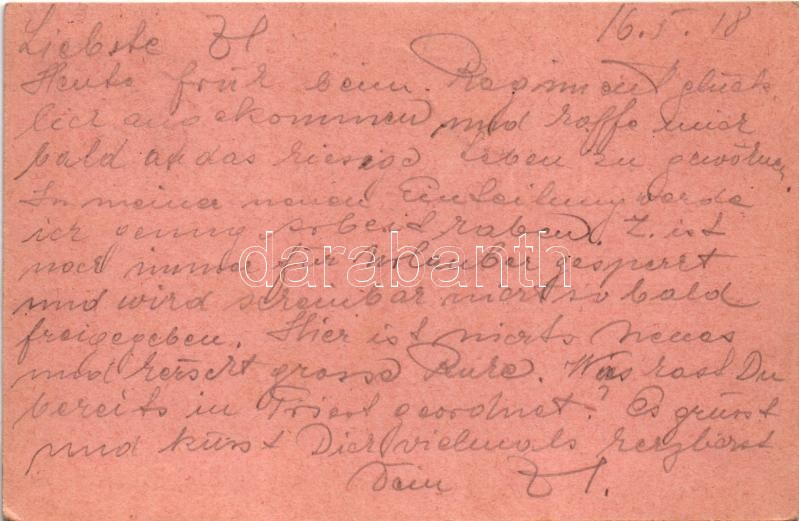 16.5.18
Liebste
Heute früh beim Regiment glück
lich angekommen und hoffe mich
bald an das hiesige Leben zu gewöhnen
In meiner neuen Einteilung werde
ich genug Arbeit haben. Z. ist
noch immer für Urlauber gesperrt
und wird scheinbar nicht so bald
freigegeben. Hier ist nichts neues
und herscht grosse Ruhe. Was hast Du
bereits in Triest geordnet? Es grüsst
und küsst Dich vielmals herzlichst
Dein
darabanth